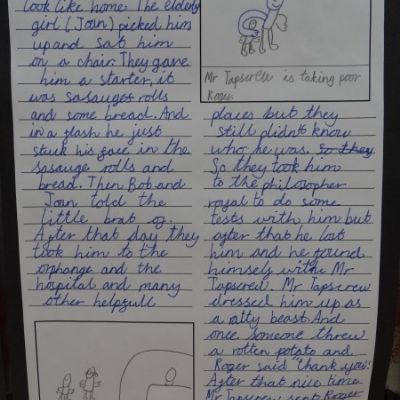 look like home. The elderly
girl (Joan) picked him
up and sat him
on a chair. They gave
him a starter, it
was sasauges rolls
and some bread. And
in a flash he just
stuck his face in the
sasauge rolls and
bread. Then Bob and
Joan told the
little brat of.
After that day they
took him to the
orphange and the
hospital and many
other helpfull
Mr Tapscrew is taking poor
Roger
places but they
still didnt know
who he was. So they
So they took him
to the philosopher
royal to do some
tests with him but
after that he lost
him and he found
himself with Mr
Tapscrew. Mr Tapscrew
dressed him up as
a ratty beast. And
once someone threw
a rotten potato and
Roger said "thank you".
After that nice time
Mr Tapscrew sent Roger